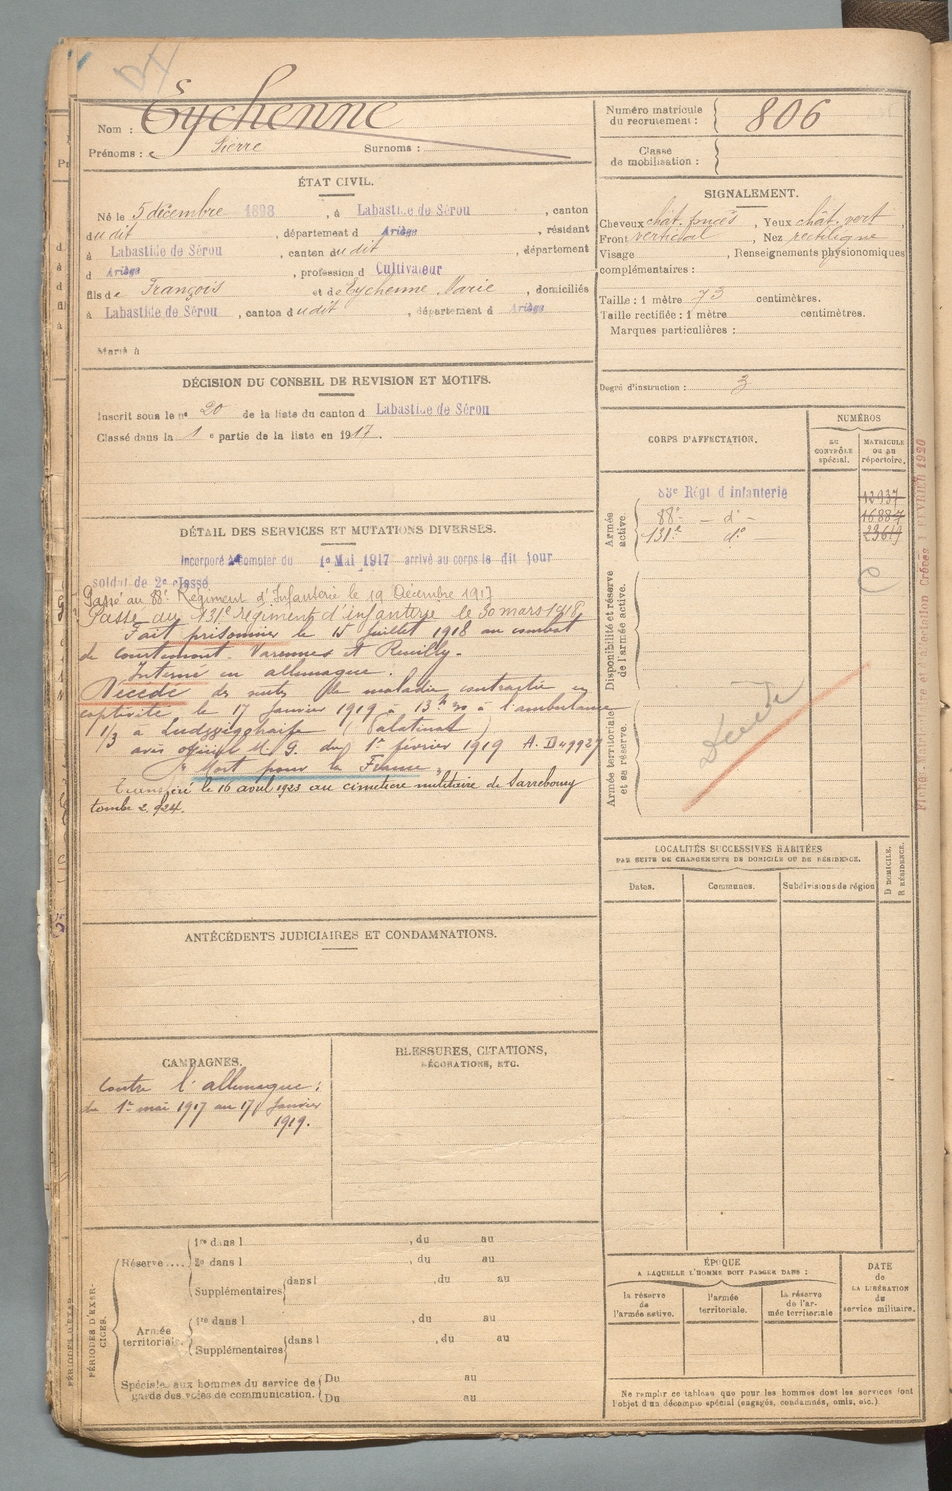 Nom : Eychenne
Prénoms : Pierre Surnoms :
Numéro matricule du recrutement : 806
Classe de mobilisation :
ÉTAT CIVIL.
Né le 5 décembre 1898, à Labastide de Sérou, canton
dudit, département d Ariège, résident
à Labastide de Sérou, canton dudit, département
d Ariège, profession d Cultivateur
fils de François et de Eychenne Marie, domiciliés
à Labastide de Sérou, canton dudit, département d Ariège
Marié à
SIGNALEMENT.
Cheveux chât. foncés, Yeux chât. vert
Front vertical, Nez rectiligne
Visage , Renseignements physionomiques
complémentaires :
Taille : 1 mètre 73 centimètres.
Taille rectifiée : 1 mètre centimètres.
Marques particulières :
Degré d'instruction : 3
DÉCISION DU CONSEIL DE REVISION ET MOTIFS.
Inscrit sous le no 20 de la liste du canton d Labastide de Sérou
Classé dans la 1e partie de la liste en 1917.
CORPS D'AFFECTATION.
NUMÉROS
AU CONTRÔLE spécial.
MATRICULE OU AU répertoire.
Armée active.
83e Régt d'Infanterie 12937
88e - do - 16887
131e do 23619
Disponibilité et réserve de l'armée active.
Armée territoriale et sa réserve.
Décédé
DÉTAIL DES SERVICES ET MUTATIONS DIVERSES.
Incorporé à compter du 1er Mai 1917 arrivé au corps le dit jour
soldat de 2e classe
Passé au 88e Régiment d'Infanterie le 19 Décembre 1917
Passé au 131e régiment d'infanterie le 30 mars 1918
Fait prisonnier le 15 juillet 1918 au combat
de Courtemont-Varennes et Reuilly.
Interné en allemagne.
Décédé des suites de maladie contractée en
captivité le 17 Janvier 1919 à 13h 30 à l'ambulance
1/3 à (Palatinat)
avis officiel M. G. du 1er février 1919 A. D 49927
"Mort pour la France"
Transféré le 16 avril 1923 au cimetière militaire de Sarrebourg
tombe 2.924.
LOCALITÉS SUCCESSIVES HABITÉES
PAR SUITE DE CHANGEMENTS DE DOMICILE OU DE RÉSIDENCE.
Dates. Communes. Subdivisions de région
D DOMICILE. R RÉSIDENCE.
ANTÉCÉDENTS JUDICIAIRES ET CONDAMNATIONS.
CAMPAGNES.
Contre l'allemagne :
du 1er mai 1917 au 17 Janvier
1919.
BLESSURES, CITATIONS,
DÉCORATIONS, ETC.
PÉRIODES D'EXERCICES.
Réserve.... 1re dans l , du au
2e dans l , du au
Supplémentaires dans l , du au
Armée territoriale. 1re dans l , du au
Supplémentaires dans l , du au
Spéciales aux hommes du service de garde des voies de communication. Du au
Du au
ÉPOQUE
A LAQUELLE L'HOMME DOIT PASSER DANS :
la réserve de l'armée active.
l'armée territoriale.
la réserve de l'armée territoriale.
DATE de LA LIBÉRATION du service militaire.
Ne remplir ce tableau que pour les hommes dont les services font
l'objet d'un décompte spécial (engagés, condamnés, omis, etc.).